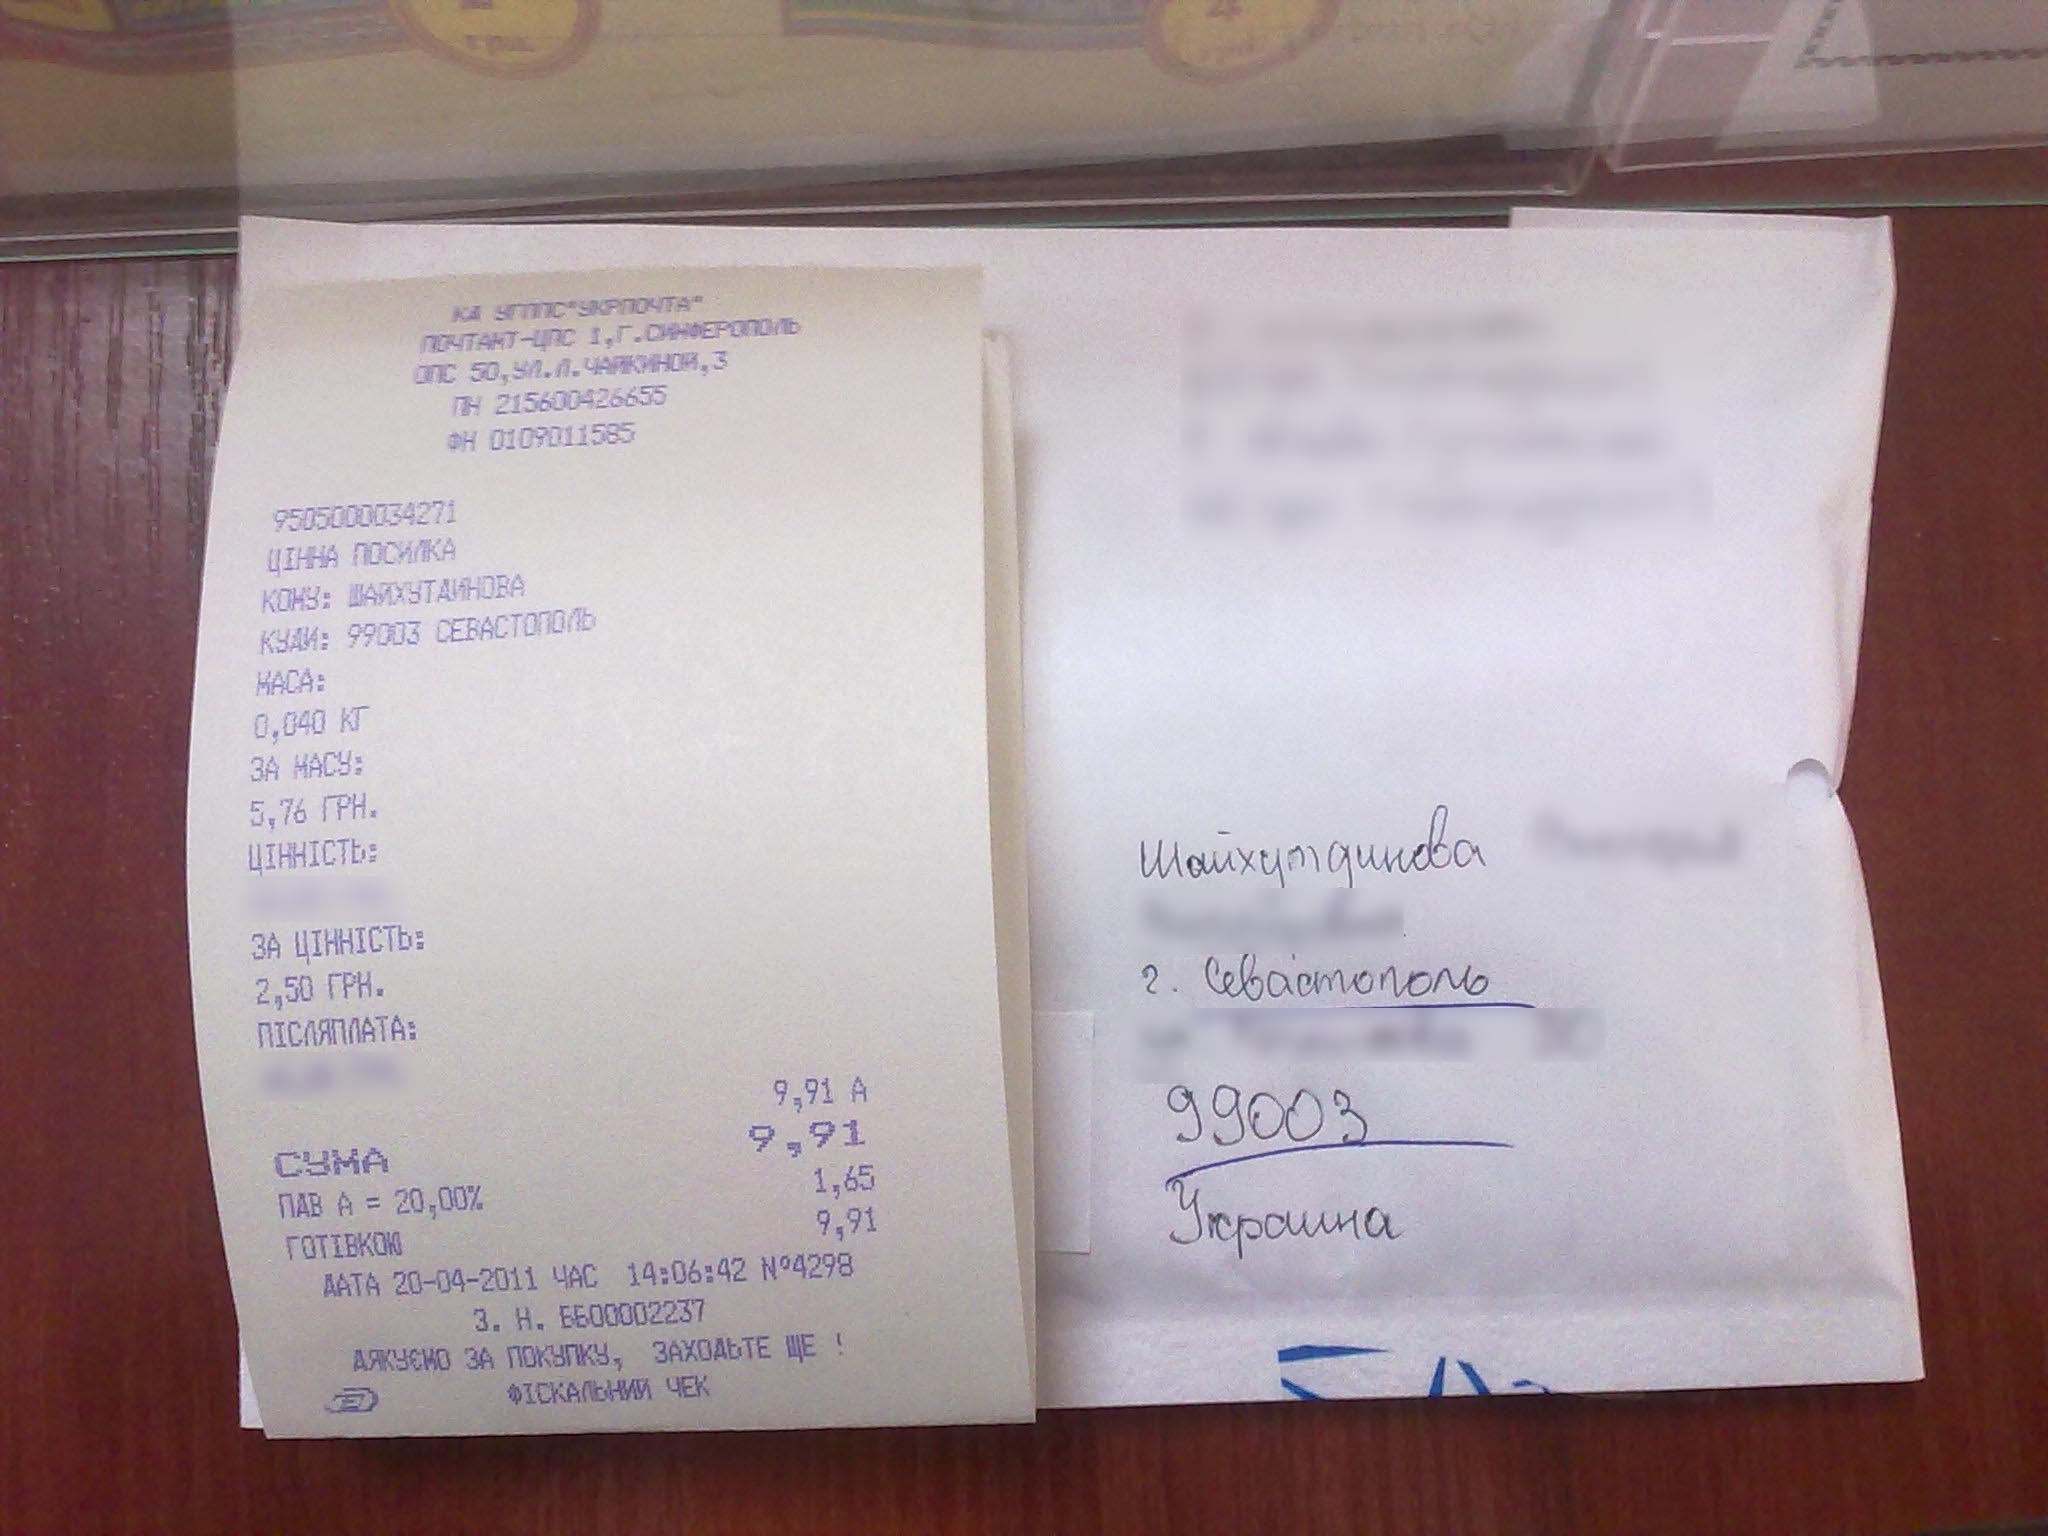 КД УГППС"УКРПОЧТА"
ПОЧТАМТ-ЦПС 1,Г.СИМФЕРОПОЛЬ
ОПС 50,УЛ.Л.ЧАЙКИНОЙ,3
ПН 215600426655
ФН 0109011585
9505000034271
ЦІННА ПОСИЛКА
КОМУ: ШАЙХУТДИНОВА
КУДИ: 99003 СЕВАСТОПОЛЬ
МАСА:
0,040 КГ
ЗА МАСУ:
5,76 ГРН.
ЦІННІСТЬ:
ЗА ЦІННІСТЬ:
2,50 ГРН.
ПІСЛЯПЛАТА:
9,91 А
СУМА 9,91
ПДВ А = 20,00% 1,65
ГОТІВКОЮ 9,91
ДАТА 20-04-2011 ЧАС 14:06:42 №4298
З. Н. ББ00002237
ДЯКУЄМО ЗА ПОКУПКУ, ЗАХОДЬТЕ ЩЕ !
ФІСКАЛЬНИЙ ЧЕК
Шайхутдинова
г. Севастополь
99003
Украина